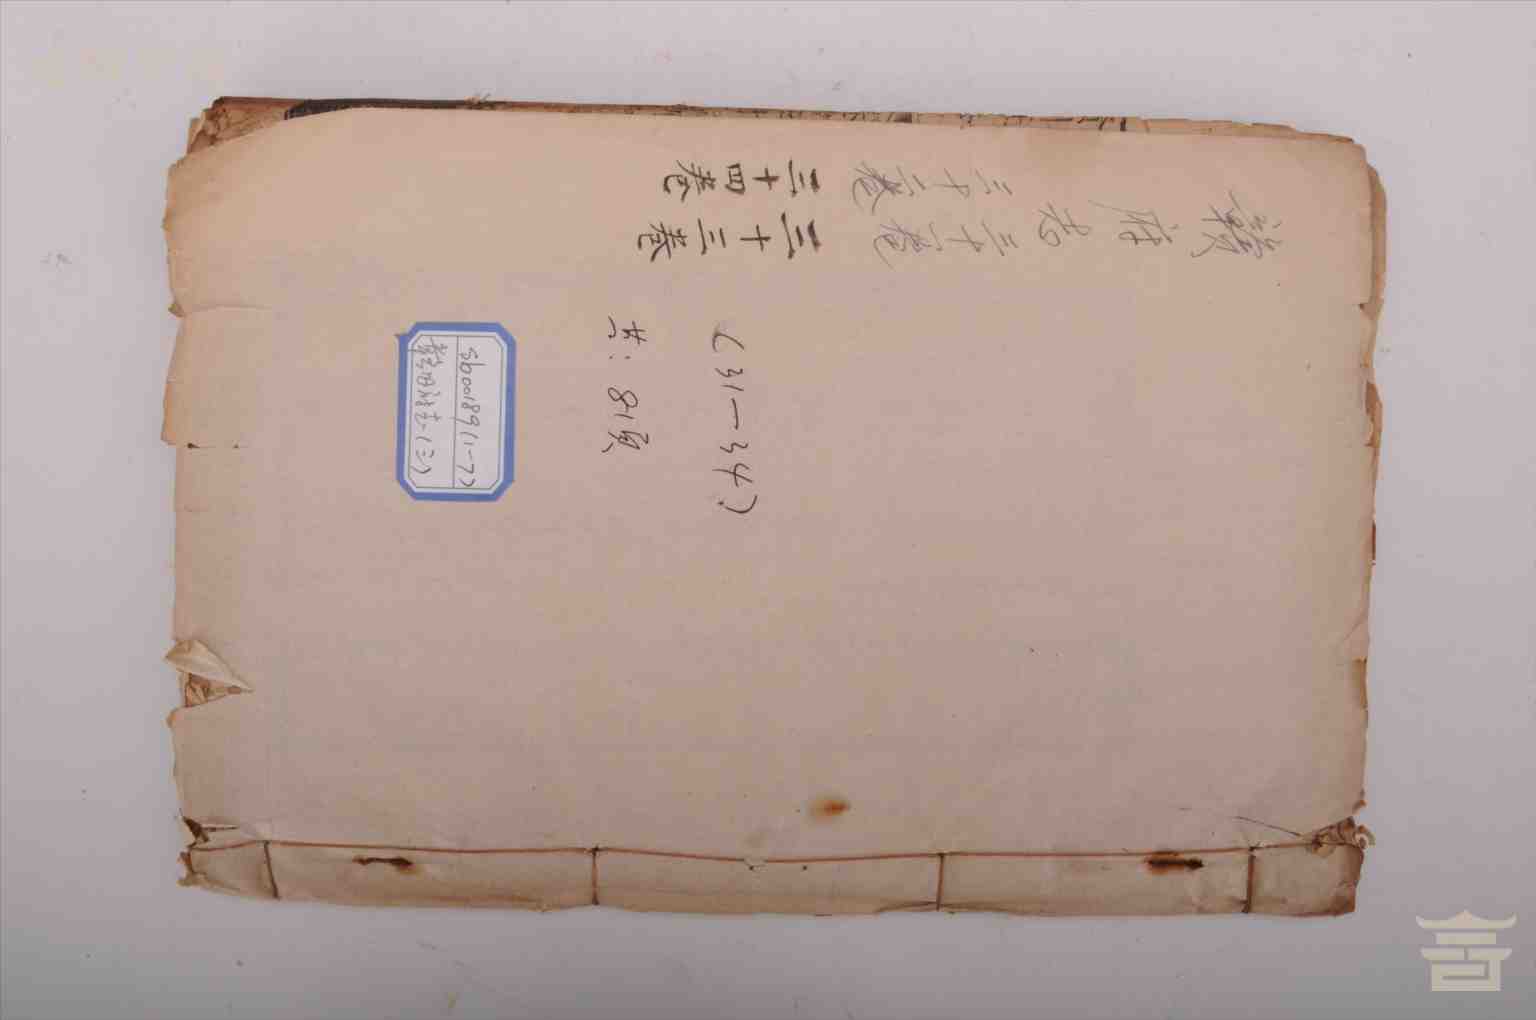 赣府志三十一卷
三十二卷
三十三卷
三十四卷
(31-34)
共:81页
sb00189(1-7)
府志(三)